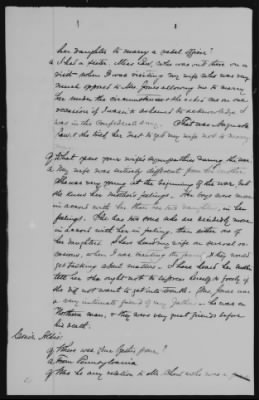 her daughter to marry a rebel officer?
a I had a sister, Miss Paul, who was out there on a
visit when I was visiting my wife who was very
much opposed to Mrs. Jones allowing me to marry
her under the circumstances & she asked me on one
occasion if I wasn't ashamed to acknowledge I
was in the Confederate Army. That was Augusta
Paul & she tried her best to get my wife not to marry
me.
q What were your wife's sympathies during the war
a My wife was entirely different from her mother.
She was very young at the beginning of the war but
she knew her mother's feelings. The boys were more
in accord with her than the two in their
feelings. She has two sons who are decidedly more
in accord with her in feeling, than either one of
her daughters. I have heard my wife on several oc-
casions, when I was visiting the family & they would
get talking about matters. I have heard her mother
tell her she ought not to express herself so freely if
she did not want to get into trouble. Mr. Jones was
a very intimate friend of my father - he was a
Northern man, & they were very great friends before
his death.
q Where was from?
a From Pennsylvania
q Was he any relation to Mr. who was a